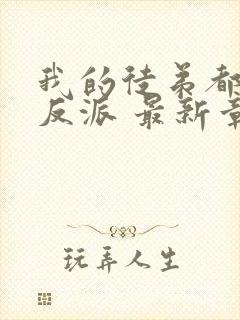 我的徒弟都
反派 最新章
玩弄人生